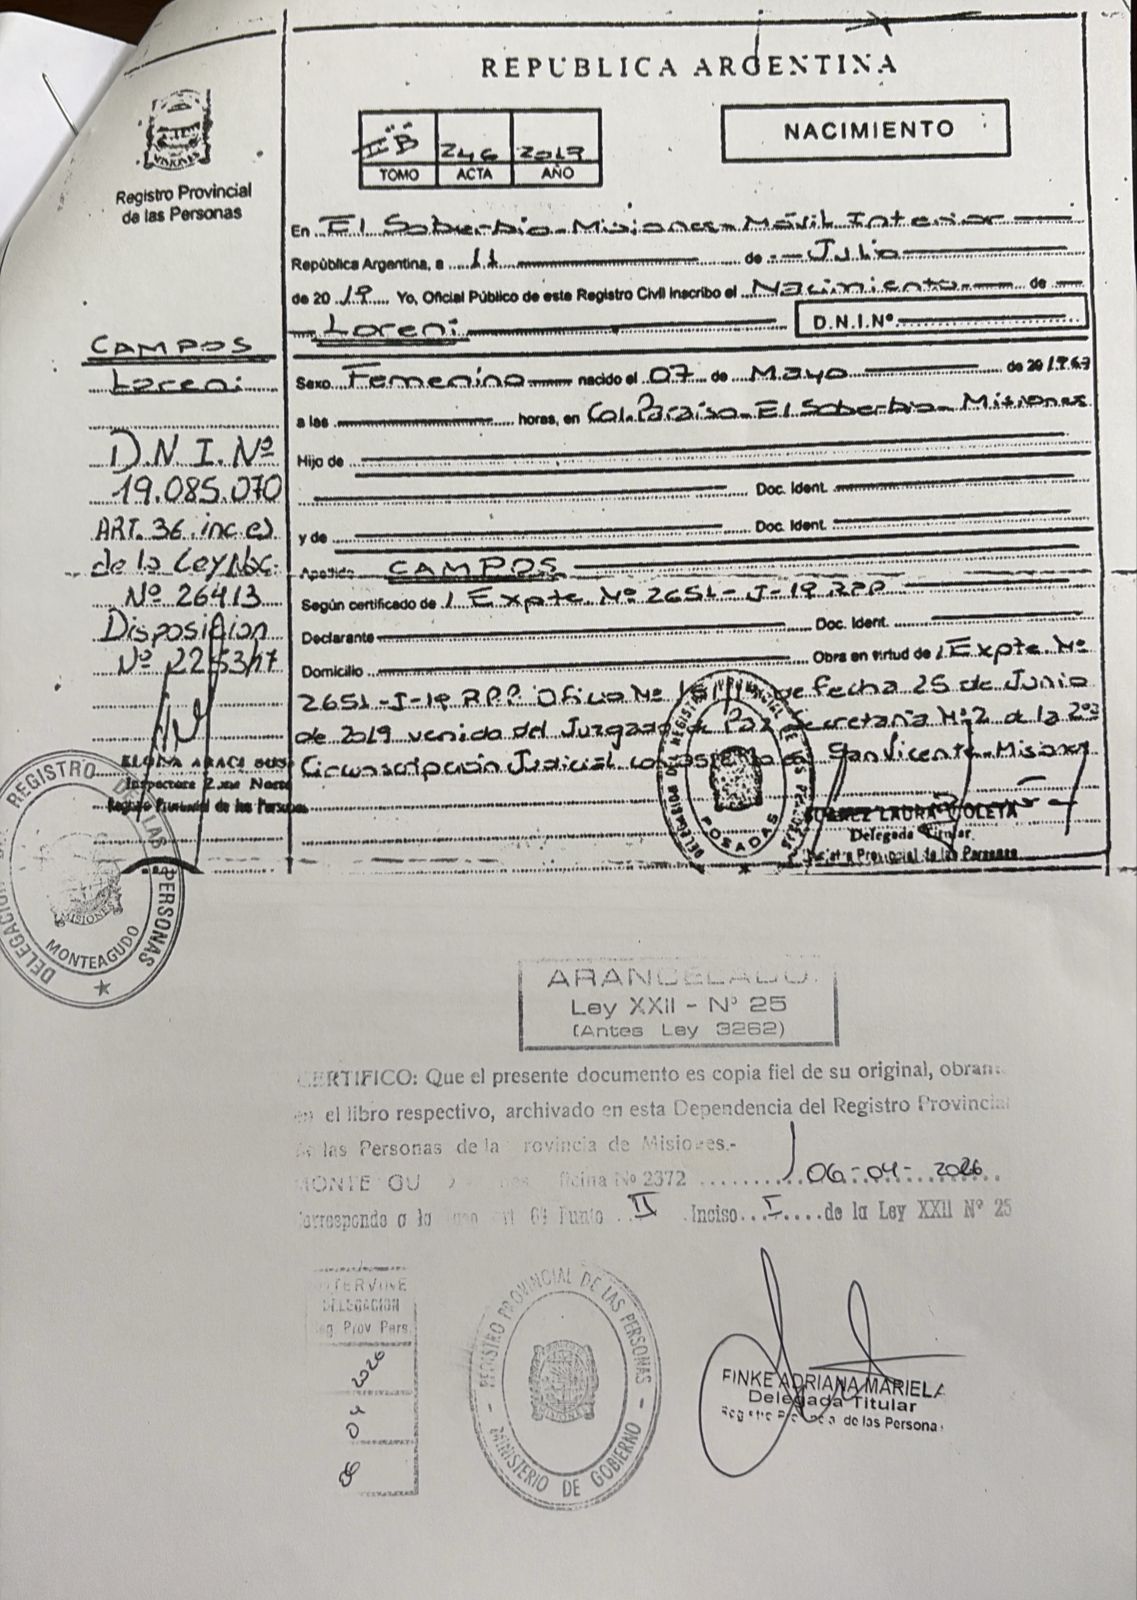 REPUBLICA ARGENTINA
Registro Provincial
de las Personas
II B 246 2019
TOMO ACTA AÑO
NACIMIENTO
En El Soberbio - Misiones - Móvil Interior
República Argentina, a 11 de Julio
de 2019 Yo, Oficial Público de este Registro Civil inscribo el Nacimiento de
Loreni D.N.I.Nº
Sexo Femenino nacido el 07 de Mayo de 20 1969
a las horas, en Col. Paraiso - El Soberbio - Misiones
Hijo de
Doc. Ident.
y de Doc. Ident.
Apellido CAMPOS
Según certificado de / Expte. Nº 2651-I-19 RPP
Declarante Doc. Ident.
Domicilio Obra en virtud de / Expte. Nº
2651-I-19 RPP Oficio Nº de fecha 25 de Junio
de 2019 venido del Juzgado de Paz Secretaria Nº 2 de la 2da
Circunscripción Judicial con asiento en San Vicente - Misiones
CAMPOS
Loreni
D.N.I. Nº
19.085.070
ART. 36 inc.
de la Ley Nac.
Nº 26413
Disposicion
Nº
Inspectora Zona Norte
Registro Provincial de las Personas
DELEGACION REGISTRO DE LAS PERSONAS
MISIONES
MONTEAGUDO
POSADAS
SUAREZ LAURA VIOLETA
Delegada Titular
Registro Provincial de las Personas
ARANCELADO.
Ley XXII - Nº 25
(Antes Ley 3262)
CERTIFICO: Que el presente documento es copia fiel de su original, obrante
en el libro respectivo, archivado en esta Dependencia del Registro Provincial
de las Personas de la Provincia de Misiones.-
MONTEAGUDO Misiones Oficina Nº 2372 06-04-2026
Corresponde a la Punto II Inciso I de la Ley XXII Nº 25
INTERVINE
DELEGACION
Reg. Prov. Pers.
06 04 2026
REGISTRO PROVINCIAL DE LAS PERSONAS
MINISTERIO DE GOBIERNO
FINKE ADRIANA MARIELA
Delegada Titular
Registro Provincial de las Personas